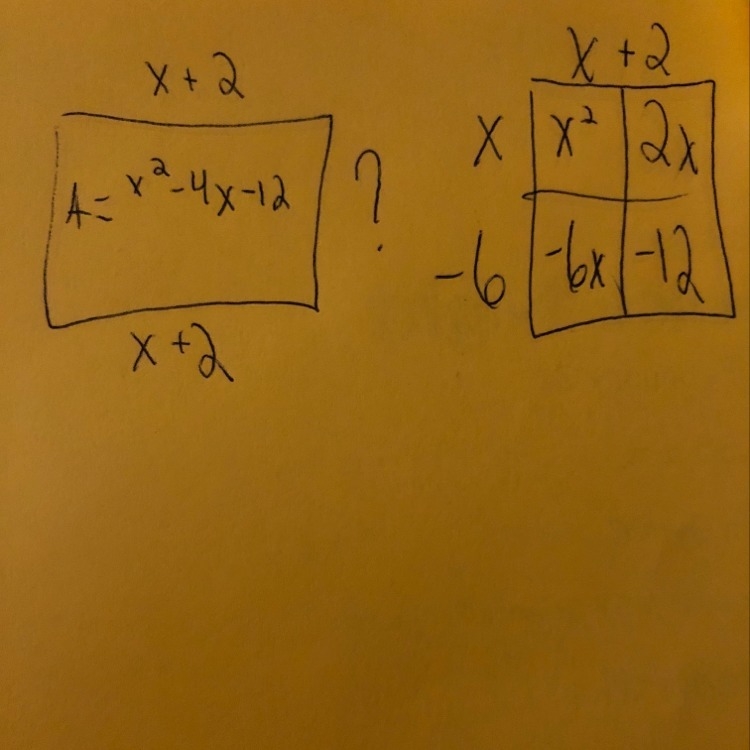 x + 2
A = x² - 4x - 12
?
x + 2
x + 2
x
x²
2x
-6
-6x
-12